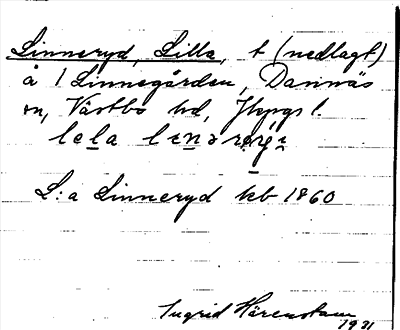 Linneryd, Lilla, t (nedlagt)
å 1 Linnegården, Dannäs
sn, Västbo hd, Jkpgs l.
L:a Linneryd hfb 1860
Ingrid Härenstam
1931